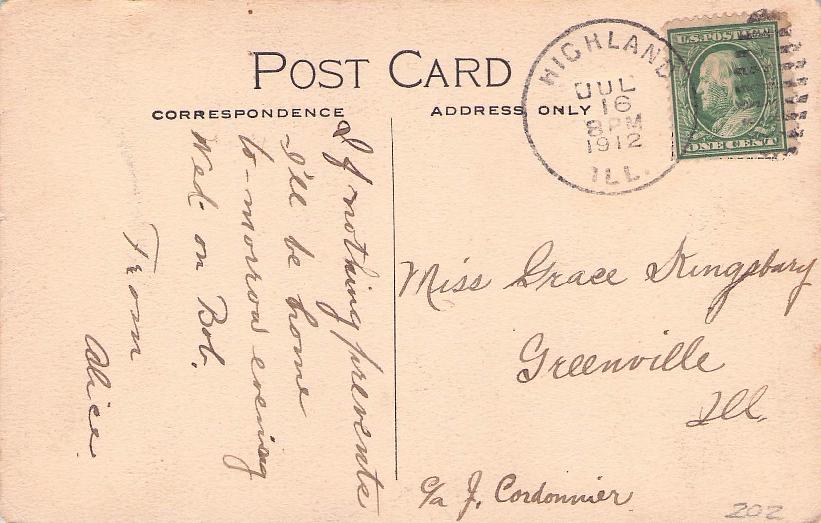 POST CARD
CORRESPONDENCE
ADDRESS ONLY
HIGHLAND
JUL
16
8 PM
1912
ILL.
U.S. POSTAGE
ONE CENT
If nothing prevents
I'll be home
to-morrow evening
Wed. on Bob.
From
Alice.
Miss Grace Kingsbury
Greenville
Ill.
c/o J. Cordonnier
202